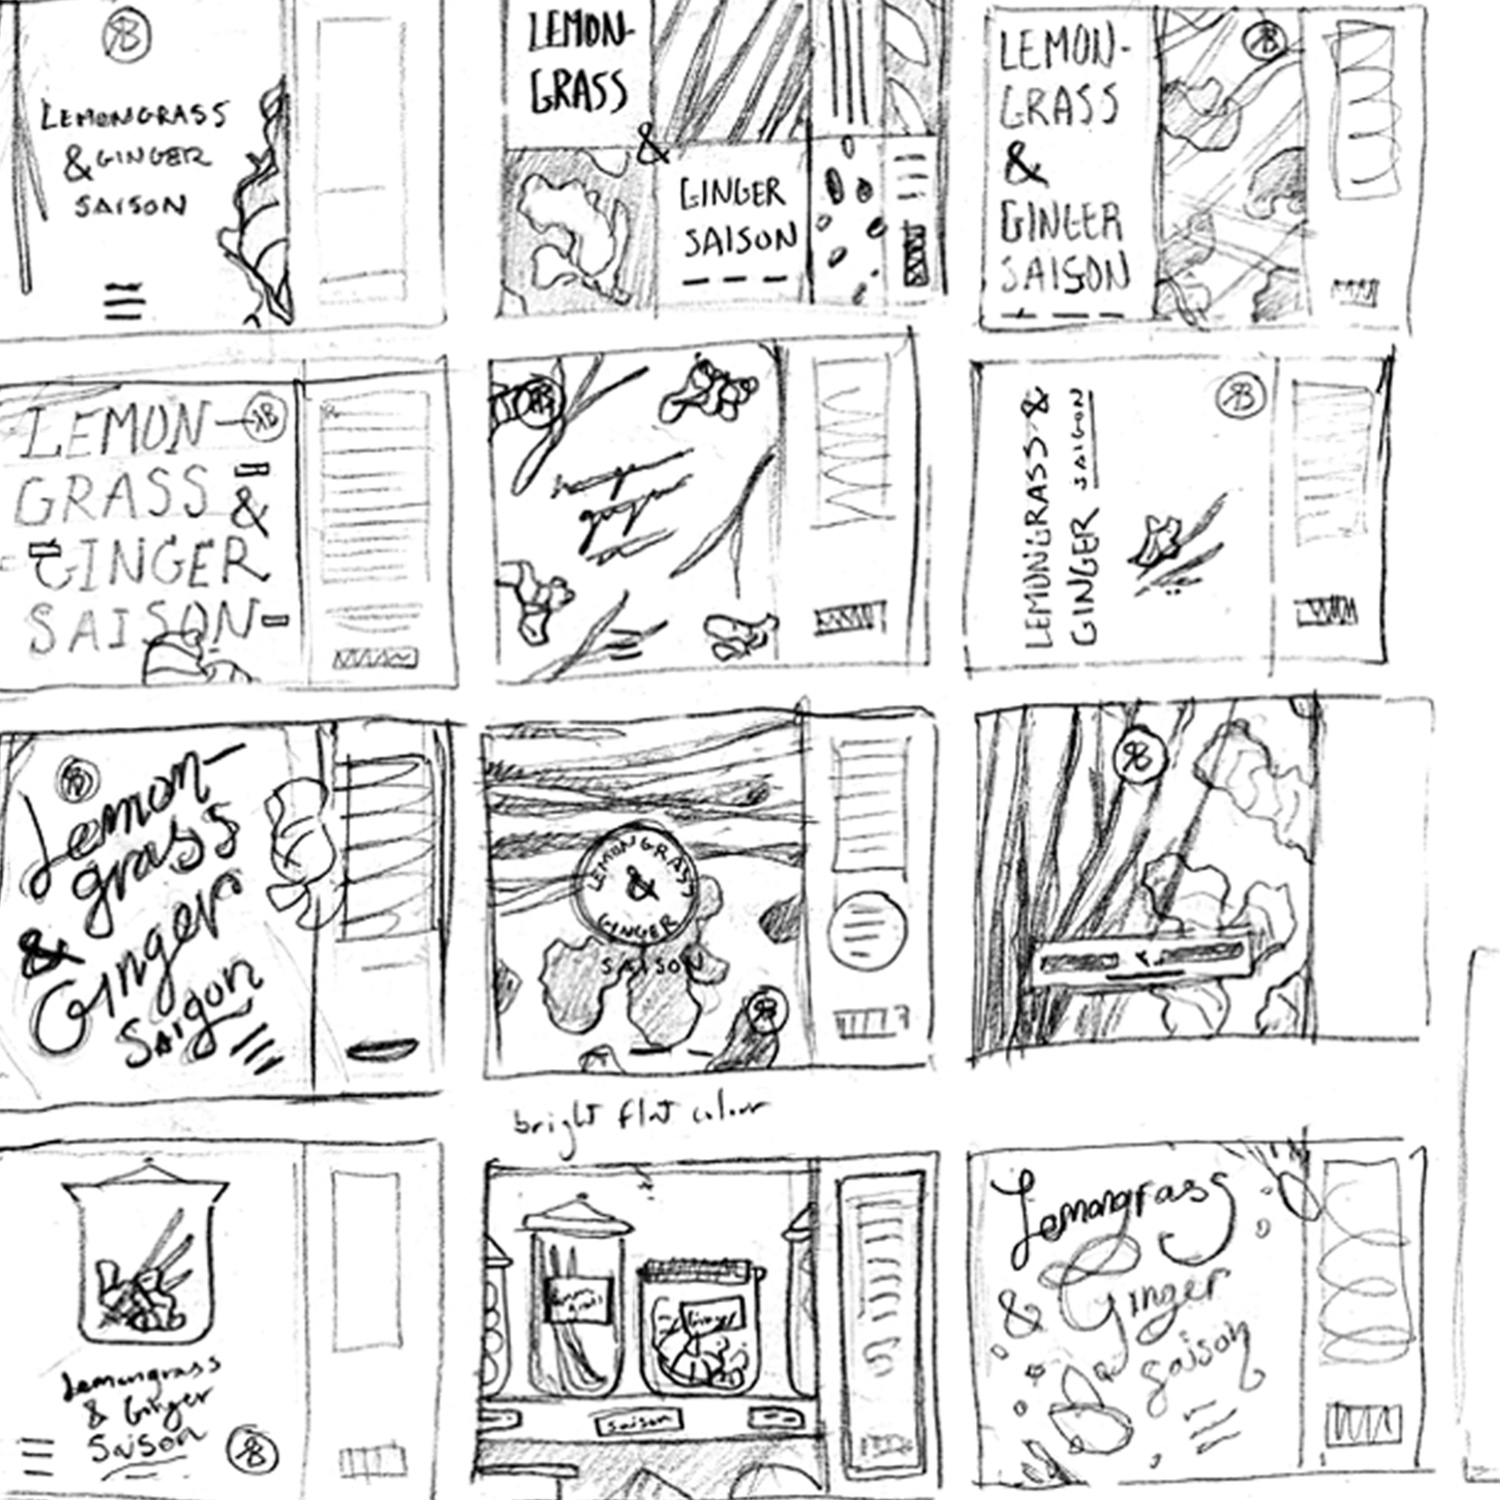 LEMONGRASS
& GINGER
SAISON
LEMON-
GRASS
&
GINGER
SAISON
LEMON-
GRASS
&
GINGER
SAISON
LEMON
GRASS
&
GINGER
SAISON
LEMONGRASS &
GINGER SAISON
Lemon-
grass
&
Ginger
Saison
LEMONGRASS
&
GINGER
SAISON
bright flat colour
Lemongrass
& Ginger
Saison
Ginger
Saison
Lemongrass
& Ginger
Saison